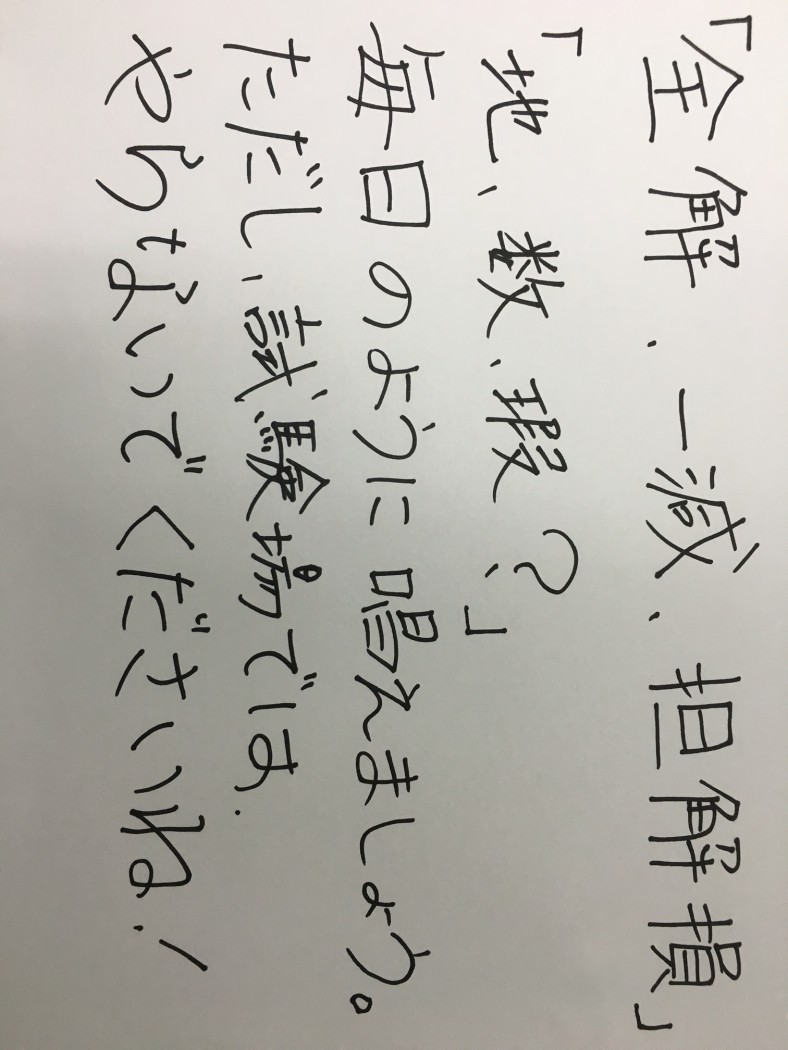 「全解、一減、担解損」
「地、数、瑕？」
毎日のように唱えましょう。
ただし、試験場では、
やらないでくださいね！